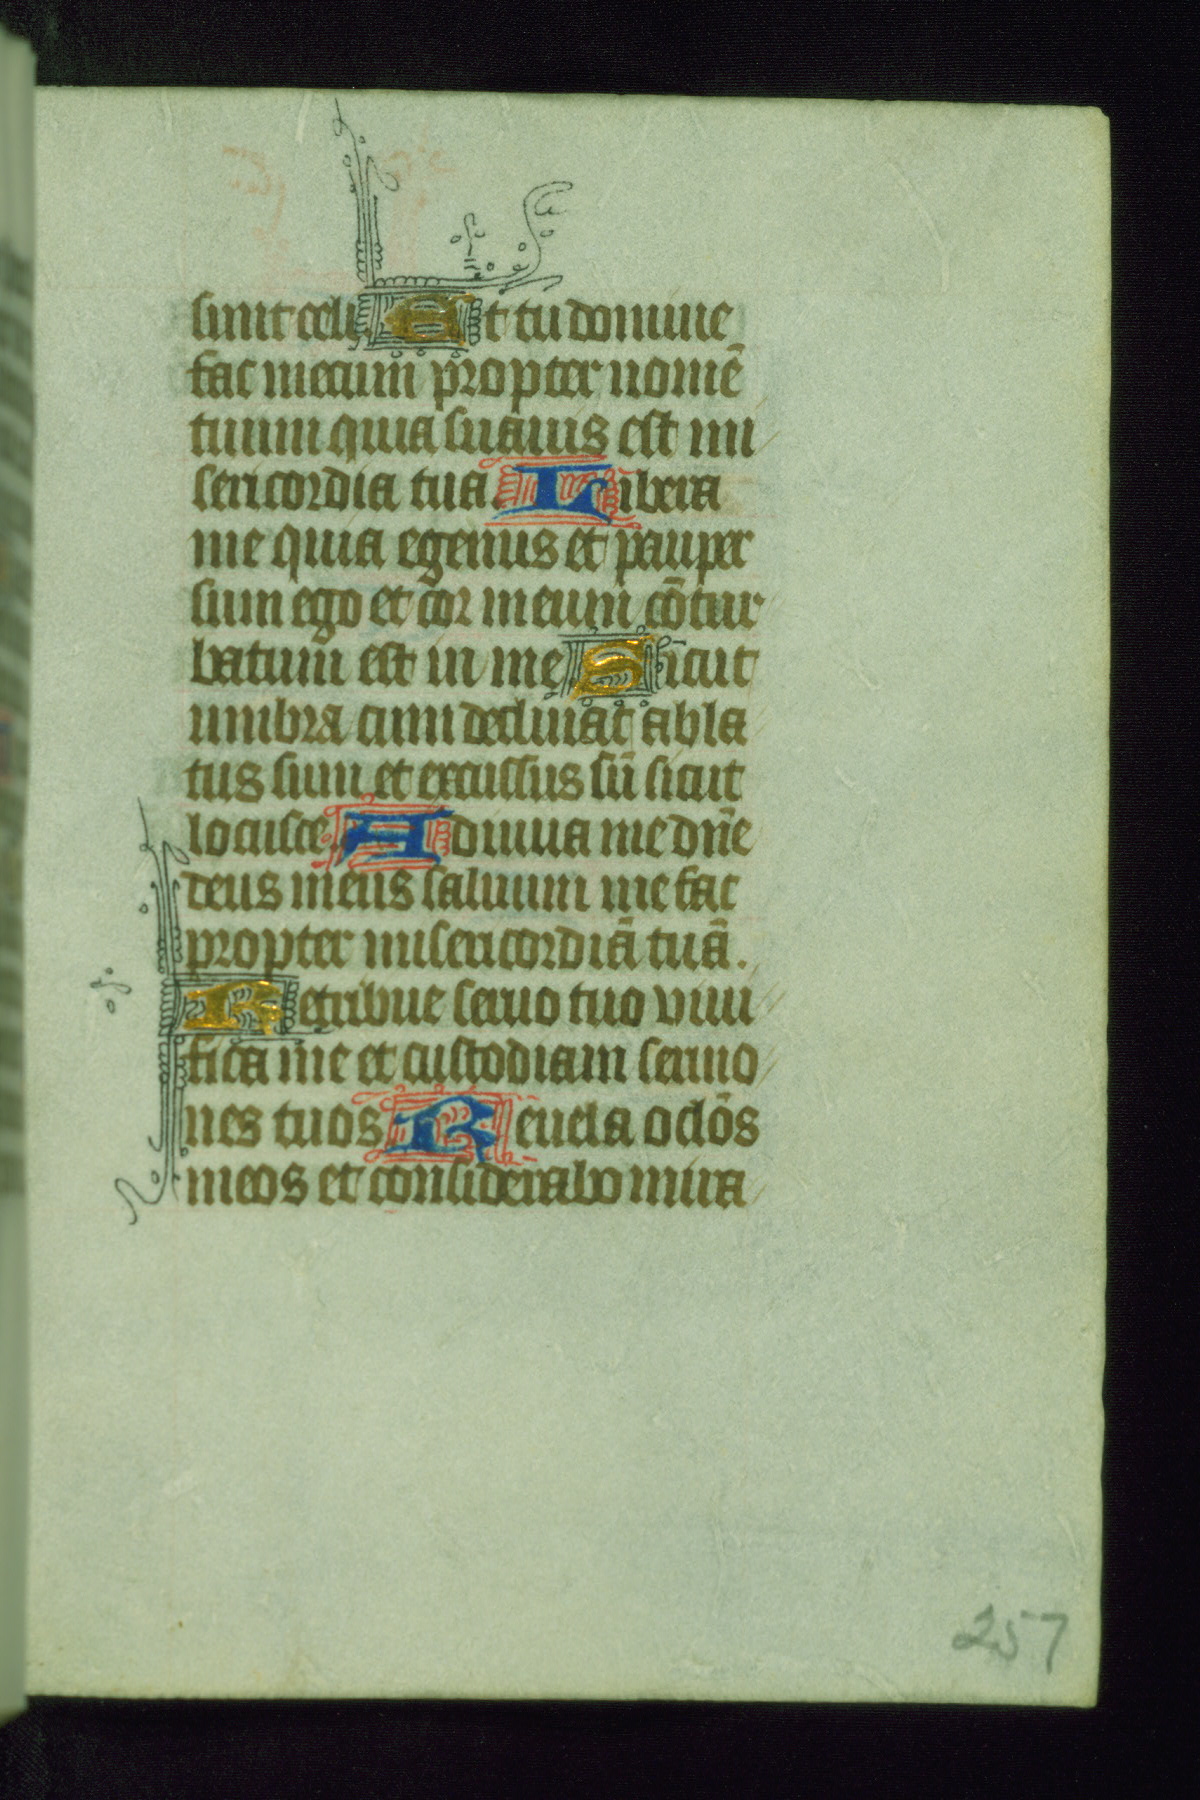 sunt celi. Et tu domine
fac mecum propter nomē
tuum quia suauis est mi
sericordia tua. Libera
me quia egenus et pauper
sum ego et cor meum cōtur
batum est in me Sicut
umbra cum declinat abla
tus sum et excussus sū sicut
locuste. Adiuua me dn̄e
deus meus saluum me fac
propter misericordiā tuā.
Retribue seruo tuo viui
fica me et custodiam sermo
nes tuos Reuela oclōs
meos et considerabo mira
257